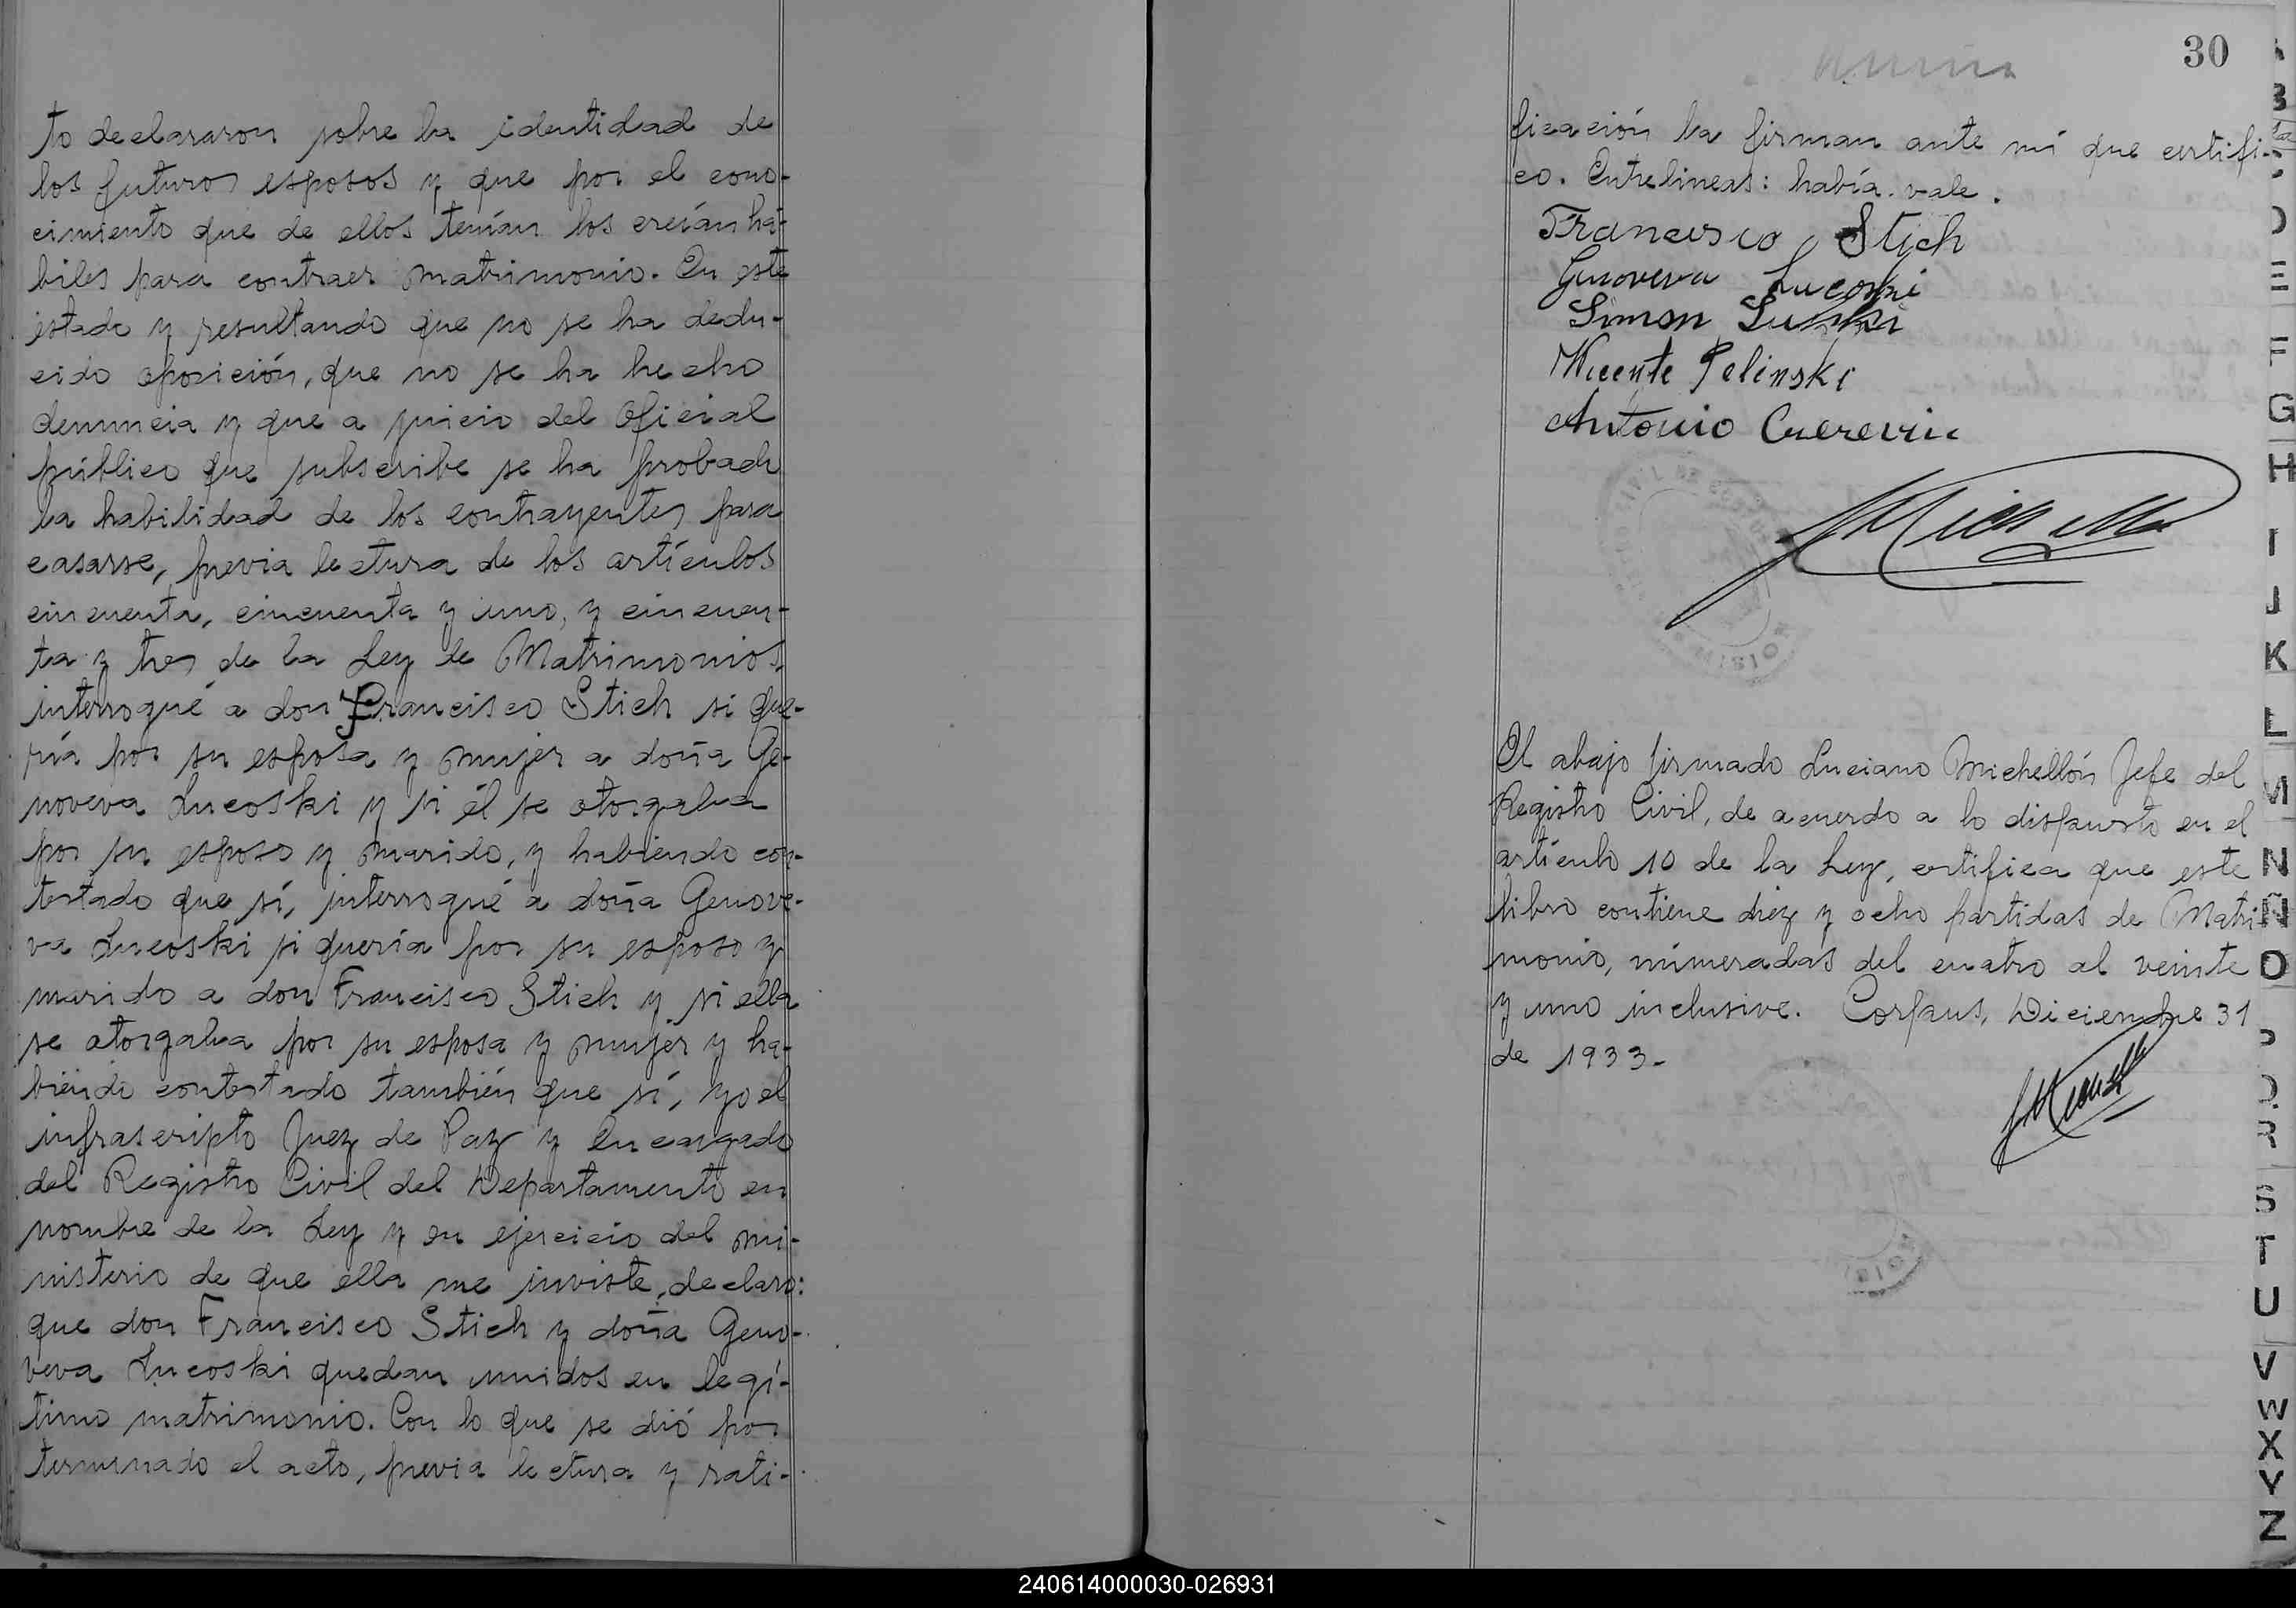 to declararon sobre la identidad de
los futuros esposos y que por el cono-
cimiento que de ellos tenían los creían há-
biles para contraer matrimonio. En este
estado y resultando que no se ha dedu-
cido oposición, que no se ha hecho
denuncia y que a juicio del Oficial
público que subscribe se ha probado
la habilidad de los contrayentes para
casarse, previa lectura de los artículos
cincuenta, cincuenta y uno, y cincuen-
ta y tres de la Ley de Matrimonios,
interrogué a don Francisco Stich si que-
ría por su esposa y mujer a doña Ge-
noveva Lucoski y si él se otorgaba
por su esposo y marido, y habiendo con-
testado que sí, interrogué a doña Genove-
va Lucoski si quería por su esposo y
marido a don Francisco Stich y si ella
se otorgaba por su esposa y mujer y ha-
biendo contestado también que sí, yo el
infrascripto Juez de Paz y Encargado
del Registro Civil del Departamento en
nombre de la Ley y en ejercicio del mi-
nisterio de que ella me inviste, declaro:
que don Francisco Stich y doña Geno-
veva Lucoski quedan unidos en legí-
timo matrimonio. Con lo que se dió por
terminado el acto, previa lectura y rati-
30
ficación la firman ante mí que certifi-
co. Entrelineas: había. vale.
Francisco Stich
Genoveva Lucoski
Simon
Vicente Pelinski
Antonio
El abajo firmado Luciano Michellón Jefe del
Registro Civil, de acuerdo a lo dispuesto en el
artículo 10 de la Ley, certifica que este
libro contiene diez y ocho partidas de Matri
monio, númeradas del cuatro al veinte
y uno inclusive. Corpus, Diciembre 31
de 1933-
B
D
E
F
G
H
I
J
K
L
M
N
Ñ
O
P
Q
R
S
T
U
V
W
X
Y
Z
240614000030-026931